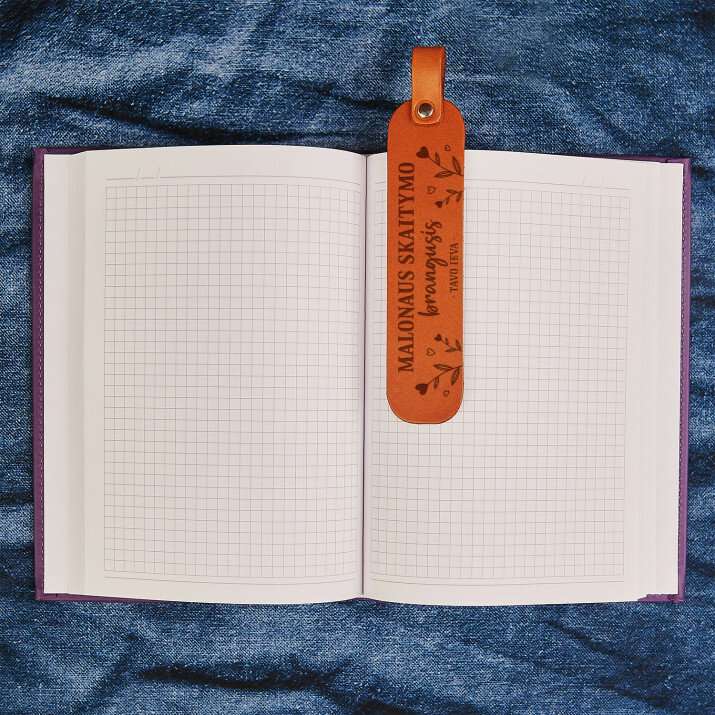 MALONAUS SKAITYMO
brangusis
- TAVO IEVA -